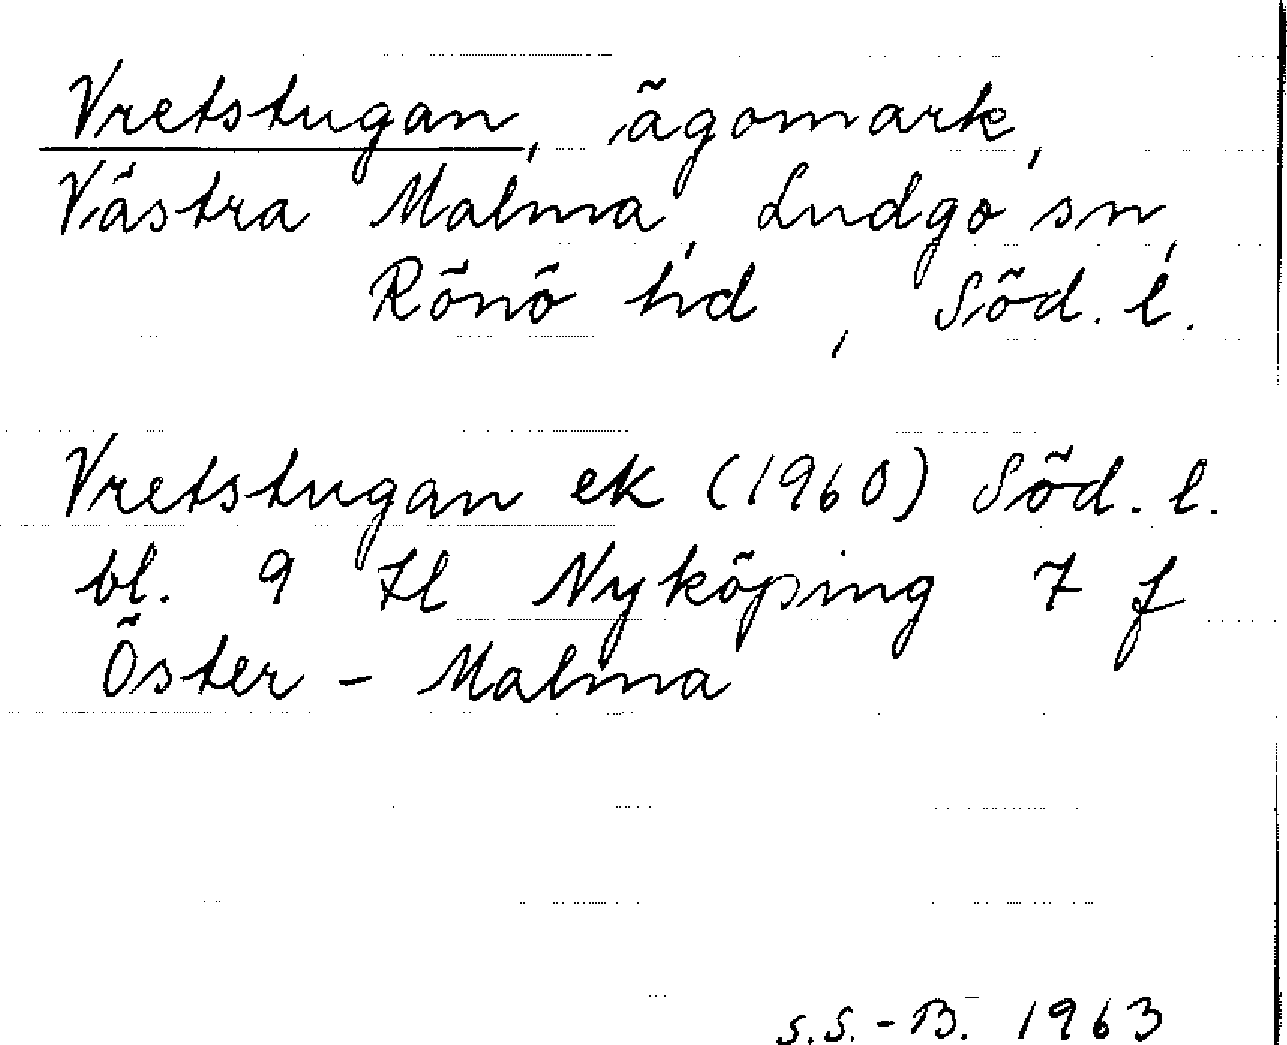 Vretstugan, ägomark,
Västra Malma, Ludgo sn,
Rönö hd, Söd. l.
Vretstugan ek (1960) Söd. l.
bl. 9 Il Nyköping 7 f
Öster - Malma
S.S.-B. 1963